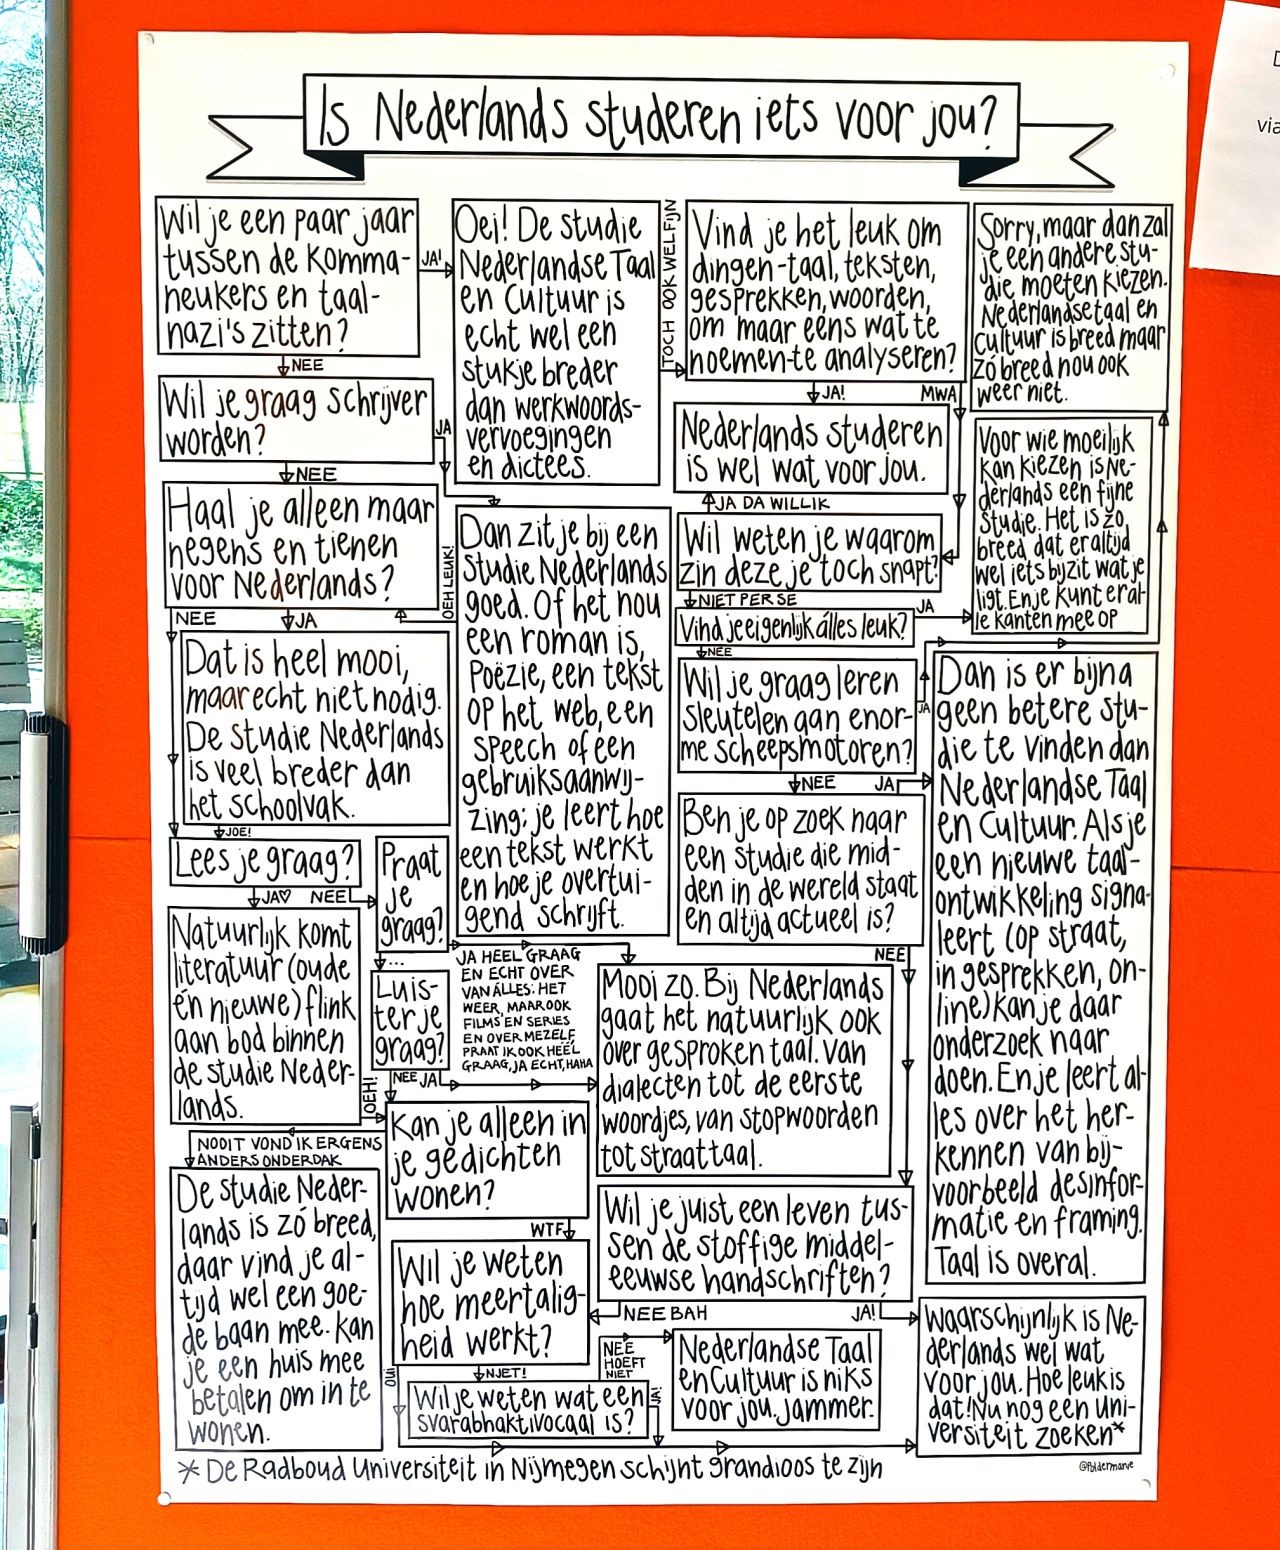 Is Nederlands studeren iets voor jou?
Wil je een paar jaar
tussen de komma-
neukers en taal-
nazi's zitten?
JA!
NEE
Oei! De studie
Nederlandse Taal
en Cultuur is
echt wel een
stukje breder
dan werkwoords-
vervoegingen
en dictees.
TOCH OOK WEL FIJN
Vind je het leuk om
dingen-taal, teksten,
gesprekken, woorden,
om maar eens wat te
noemen-te analyseren?
JA!
MWA
Sorry, maar dan zal
je een andere stu-
die moeten kiezen.
Nederlandse taal en
Cultuur is breed maar
zó breed nou ook
weer niet.
Wil je graag schrijver
worden?
JA
NEE
Nederlands studeren
is wel wat voor jou.
JA DA WILLIK
Voor wie moeilijk
kan kiezen is Ne-
derlands een fijne
studie. Het is zo
breed dat er altijd
wel iets bij zit wat je
ligt. En je kunt er al-
le kanten mee op
Haal je alleen maar
negens en tienen
voor Nederlands?
NEE
JA
OEH LEUK!
Dan zit je bij een
studie Nederlands
goed. Of het nou
een roman is,
Poëzie, een tekst
op het web, een
speech of een
gebruiksaanwij-
zing: je leert hoe
een tekst werkt
en hoe je overtui-
gend schrijft.
Wil weten je waarom
zin deze je toch snapt?
NIET PER SE
Vind je eigenlijk álles leuk?
JA
NEE
Wil je graag leren
sleutelen aan enor-
me scheepsmotoren?
JA
NEE
Dat is heel mooi,
maar echt niet nodig.
De studie Nederlands
is veel breder dan
het schoolvak.
JOE!
Ben je op zoek naar
een studie die mid-
den in de wereld staat
en altijd actueel is?
JA
NEE
Dan is er bijna
geen betere stu-
die te vinden dan
Nederlandse Taal
en Cultuur. Als je
een nieuwe taal-
ontwikkeling signa-
leert (op straat,
in gesprekken, on-
line) kan je daar
onderzoek naar
doen. En je leert al-
les over het her-
kennen van bij-
voorbeeld desinfor-
matie en framing.
Taal is overal.
Lees je graag?
JA♡
NEE
Praat
je
graag?
...
JA HEEL GRAAG
EN ECHT OVER
VAN ÁLLES: HET
WEER, MAAR OOK
FILMS EN SERIES
EN OVER MEZELF,
PRAAT IK OOK HEEL
GRAAG, JA ECHT, HAHA
Natuurlijk komt
literatuur (oude
én nieuwe) flink
aan bod binnen
de studie Neder-
lands.
OEH!
Luis-
ter je
graag?
NEE
JA
Mooi zo. Bij Nederlands
gaat het natuurlijk ook
over gesproken taal. Van
dialecten tot de eerste
woordjes, van stopwoorden
tot straattaal.
Kan je alleen in
je gedichten
wonen?
NOOIT VOND IK ERGENS
ANDERS ONDERDAK
WTF
De studie Neder-
lands is zó breed,
daar vind je al-
tijd wel een goe-
de baan mee. Kan
je een huis mee
betalen om in te
wonen.
Wil je juist een leven tus-
sen de stoffige middel-
eeuwse handschriften?
NEE BAH
JA!
Wil je weten
hoe meertalig-
heid werkt?
OUI
NJET!
Wil je weten wat een
svarabhaktivocaal is?
NEE
HOEFT
NIET
JA!
Nederlandse Taal
en Cultuur is niks
voor jou. Jammer.
Waarschijnlijk is Ne-
derlands wel wat
voor jou. Hoe leuk is
dat! Nu nog een uni-
versiteit zoeken*
* De Radboud Universiteit in Nijmegen schijnt grandioos te zijn
@Poldermarve
D
via